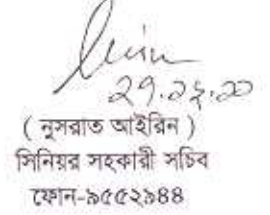 ২৭.১২.২০
( নুসরাত আইরিন )
সিনিয়র সহকারী সচিব
ফোন-৯৫৫২৯৪৪